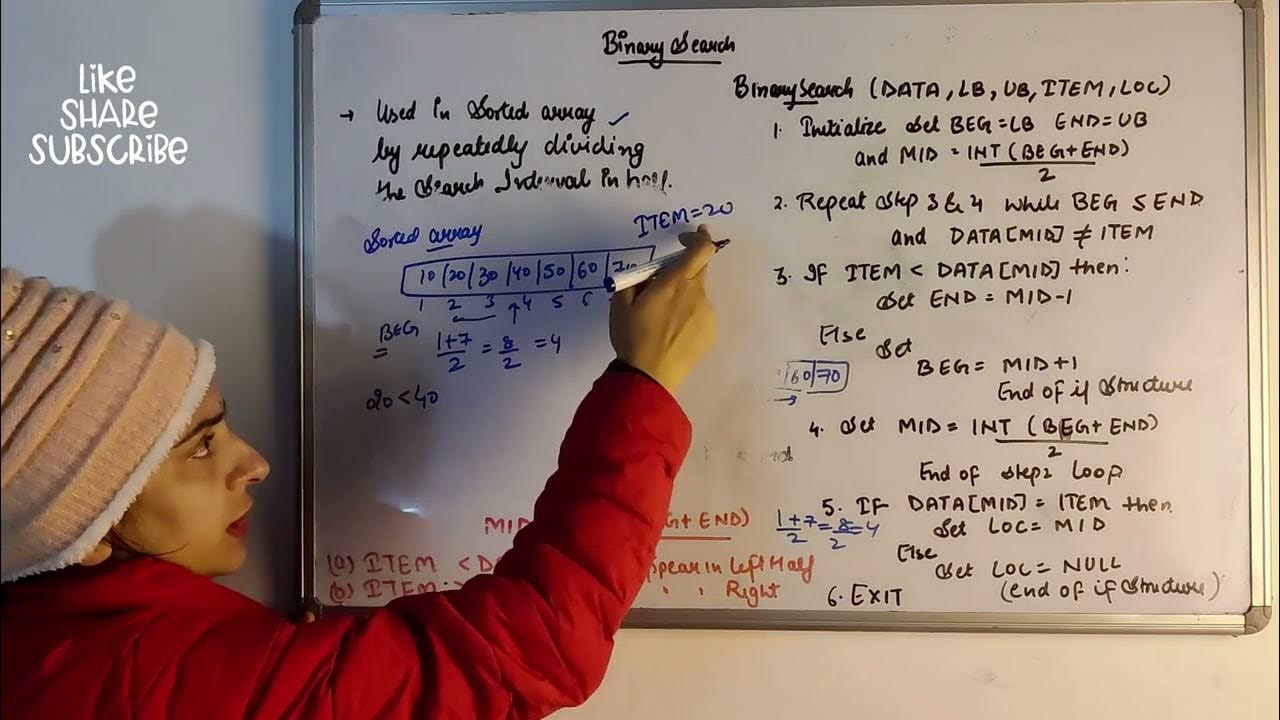 LIKE
SHARE
SUBSCRIBE
Binary Search
→ Used in Sorted array ✓
by repeatedly dividing
the Search Interval in half.
Sorted array
ITEM=20
10 | 20 | 30 | 40 | 50 | 60 | 70
1 2 3 ↑ 4 5 6
BEG
= 1+7/2 = 8/2 = 4
20 < 40
MID G+ END)
(a) ITEM < D ppear in left Half
(b) ITEM > " " Right
BinarySearch (DATA, LB, UB, ITEM, LOC)
1. Initialize Set BEG=LB END=UB
and MID = INT (BEG+END)
2
2. Repeat Step 3 & 4 while BEG ≤ END
and DATA[MID] ≠ ITEM
3. If ITEM < DATA[MID] then:
Set END = MID-1
Else
Set
BEG = MID+1
|60|70|
→
End of if Structure
4. Set MID = INT (BEG+ END)
2
End of Step2 Loop
5. IF DATA[MID] = ITEM then
1+7/2 = 8/2 = 4
Set LOC = MID
Else
Set LOC = NULL
(end of if Structure)
6. EXIT